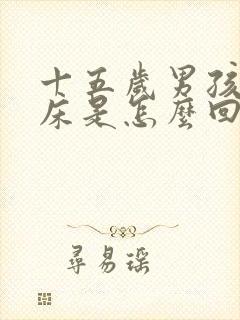 十五歲男孩
床是怎麼回
尋易瑤